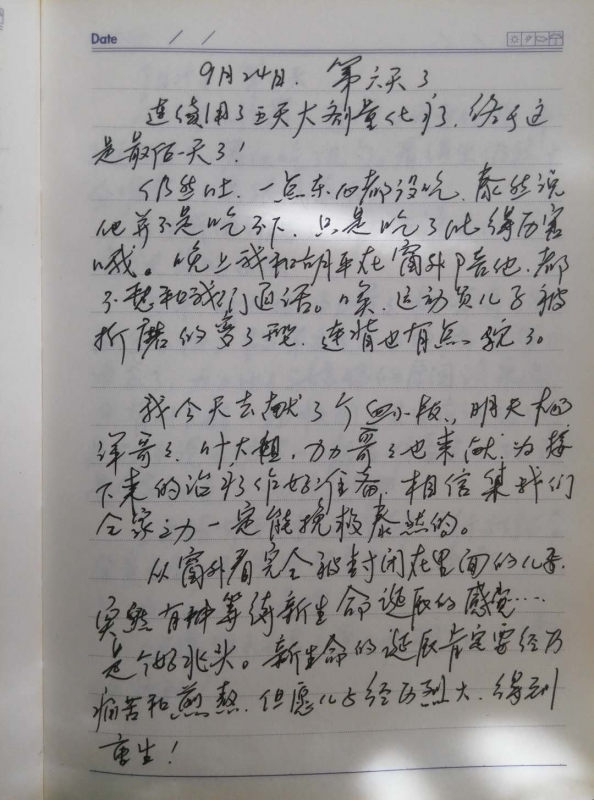 Date / /
9月24日. 第六天了
连续用了五天大剂量化疗. 终于这
是最后一天了!
仍然吐. 一点东西都没吃. 泰然说
他并不是吃不下. 只是吃了吐得历害
哦。晚上我和胡平在窗外陪他. 都
不想和我们通话。唉. 运动员儿子被
折磨的变了形. 连背也有点驼了。
我今天去献了个血小板, 明天
洋哥哥. 叶大姐, 力力哥哥也来献. 为接
下来的治疗作好准备. 相信集我们
全家之力一定能挽救泰然的。
从窗外看完全被封闭在里面的儿子.
突然有种等待新生命诞辰的感觉……
是个好兆头。新生命的诞辰肯定要经历
痛苦和煎熬. 但愿儿子经历烈火. 得到
重生!